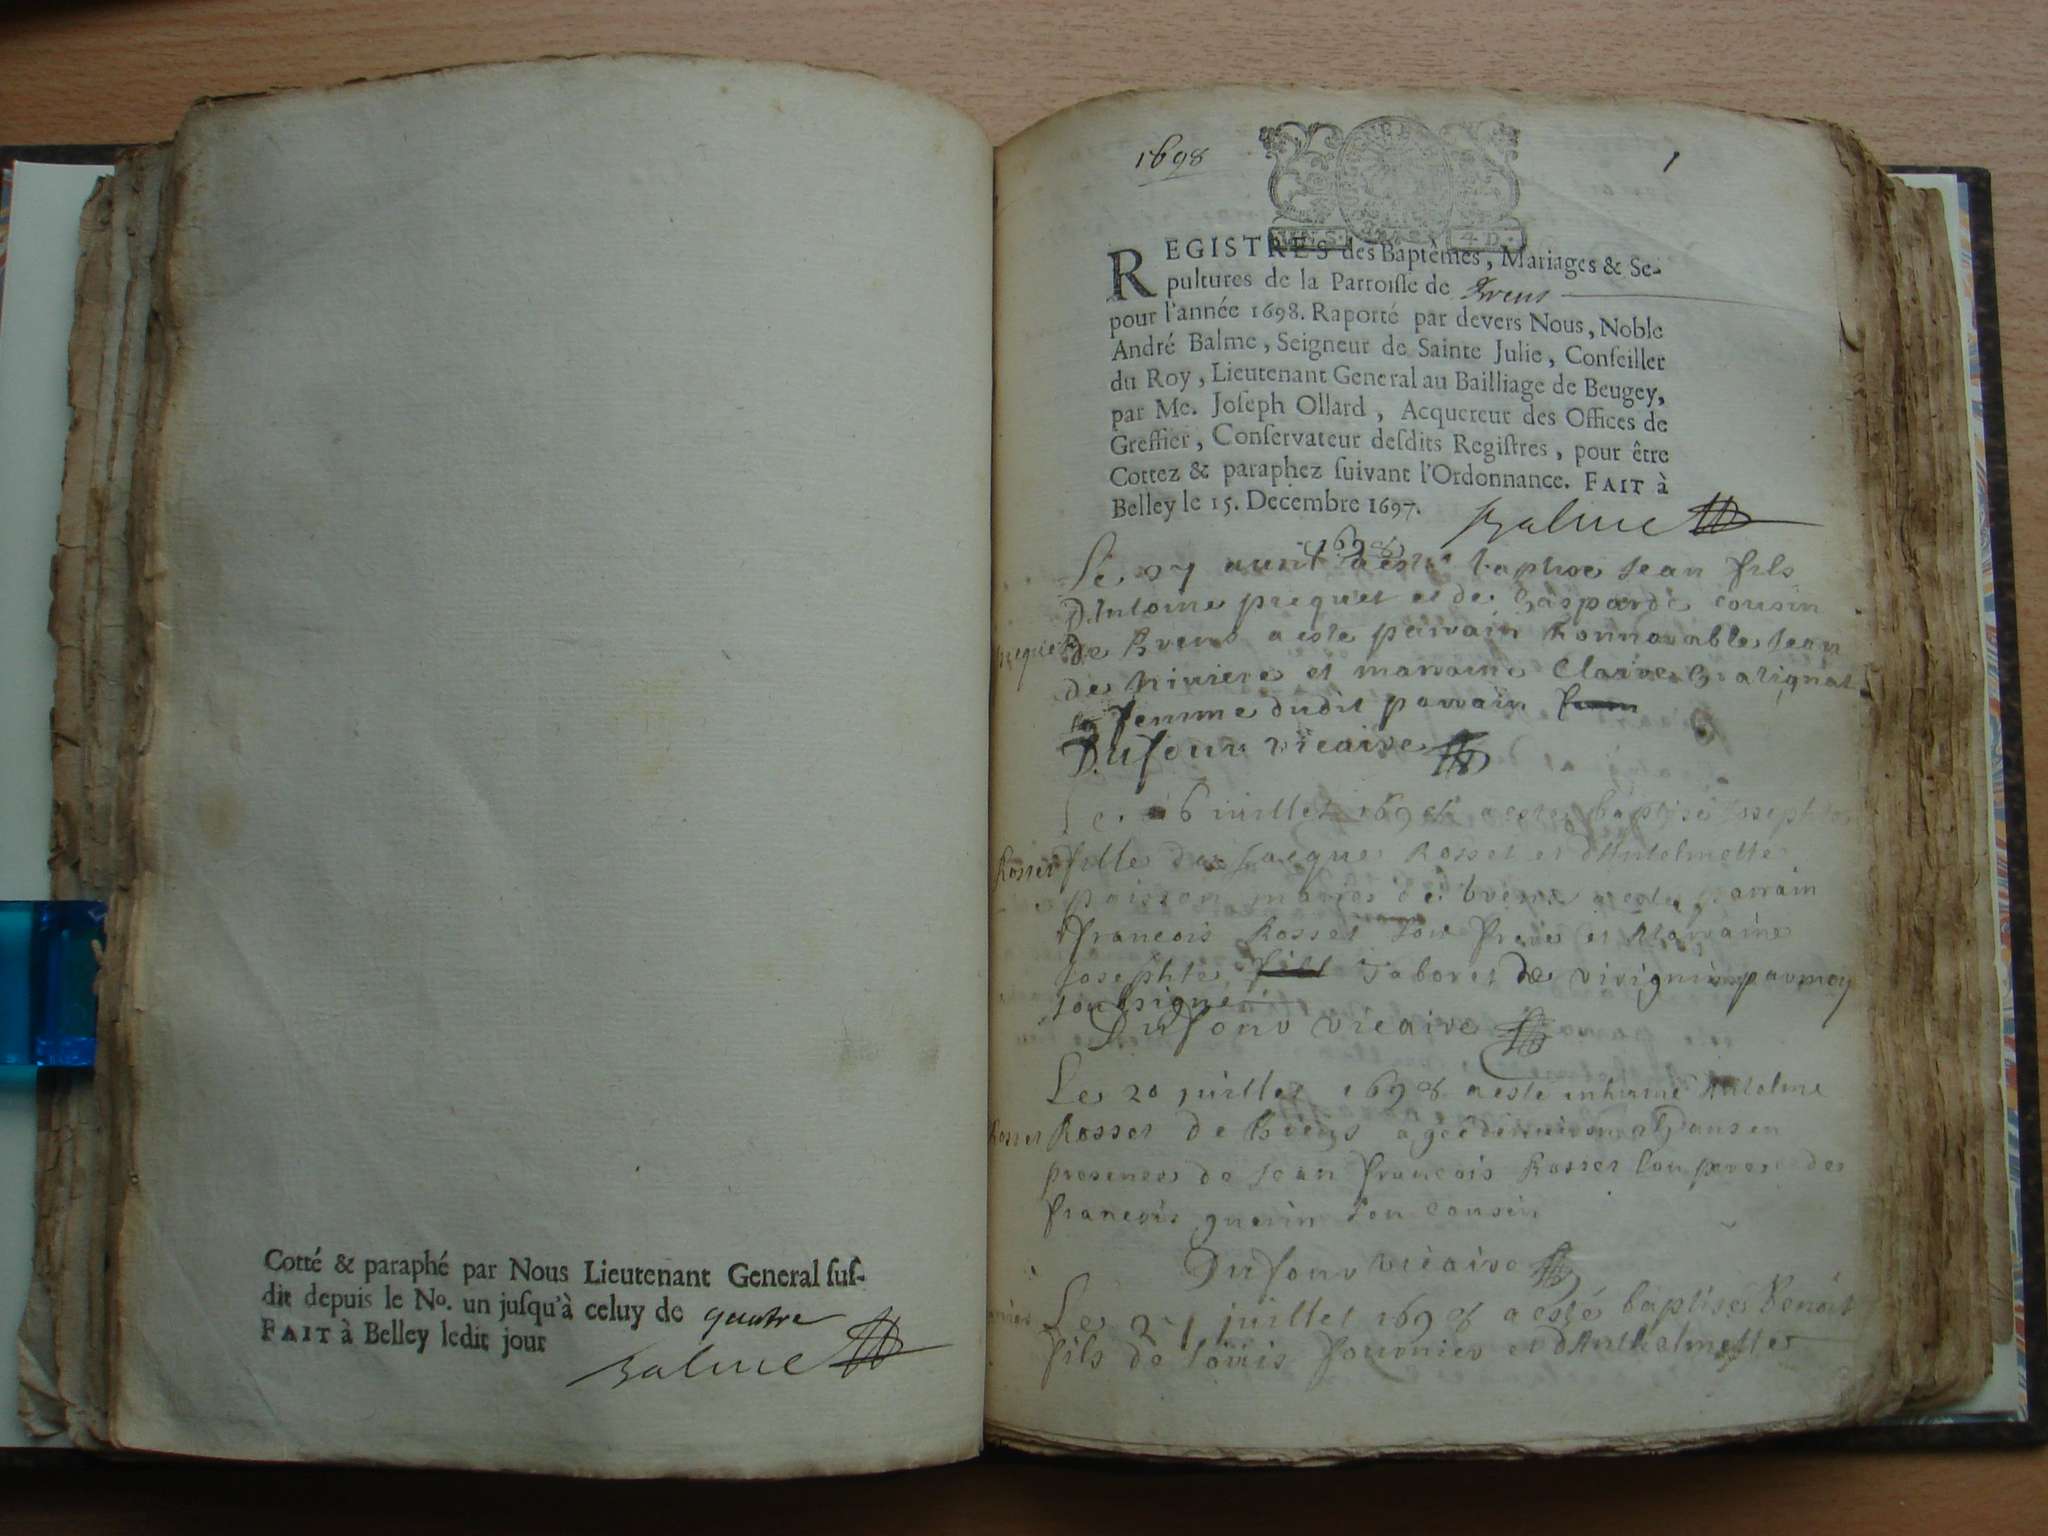 Cotté & paraphé par Nous Lieutenant General suſ-
dit depuis le No. un juſqu'à celuy de quatre
FAIT à Belley ledit jour
Balme
1698
1
4 D.
REGISTRES des Baptêmes, Mariages & Se-
pultures de la Parroiſſe de Brens
pour l'année 1698. Raporté par devers Nous, Noble
André Balme, Seigneur de Sainte Julie, Conſeiller
du Roy, Lieutenant General au Bailliage de Beugey,
par Me. Joſeph Ollard, Acquereur des Offices de
Greffier, Conſervateur deſdits Regiſtres, pour être
Cottez & paraphez ſuivant l'Ordonnance. FAIT à
Belley le 15. Decembre 1697.
Balme
1698
Le 27 auril a esté baptise Jean fils
D'Antoine prequet et de Gasparde cousin
De Brens a este parrain honnorable Jean
de riviere et marraine Claire
femme dudit parrain
Dufour vicaire
Le 6 juillet 1698 a este baptisé Josephte
Rosset fille de Jacque Rosset et d'Antelmette
poisson mariés de brens a este parrain
francois Rosset son frere et Marraine
Josephte Taboret de virignin par moy
soubsigné
Dufour vicaire
Le 20 juillet 1698 a esté inhumé Antelme
Rosset Rosset de Brens agé d'environ ans en
presence de Jean francois Rosset son pere et de
francois guerin son cousin
Dufour vicaire
Le 27 juillet 1698 a esté baptisé Benoit
fils de Louis fournier et d'Anthelmette